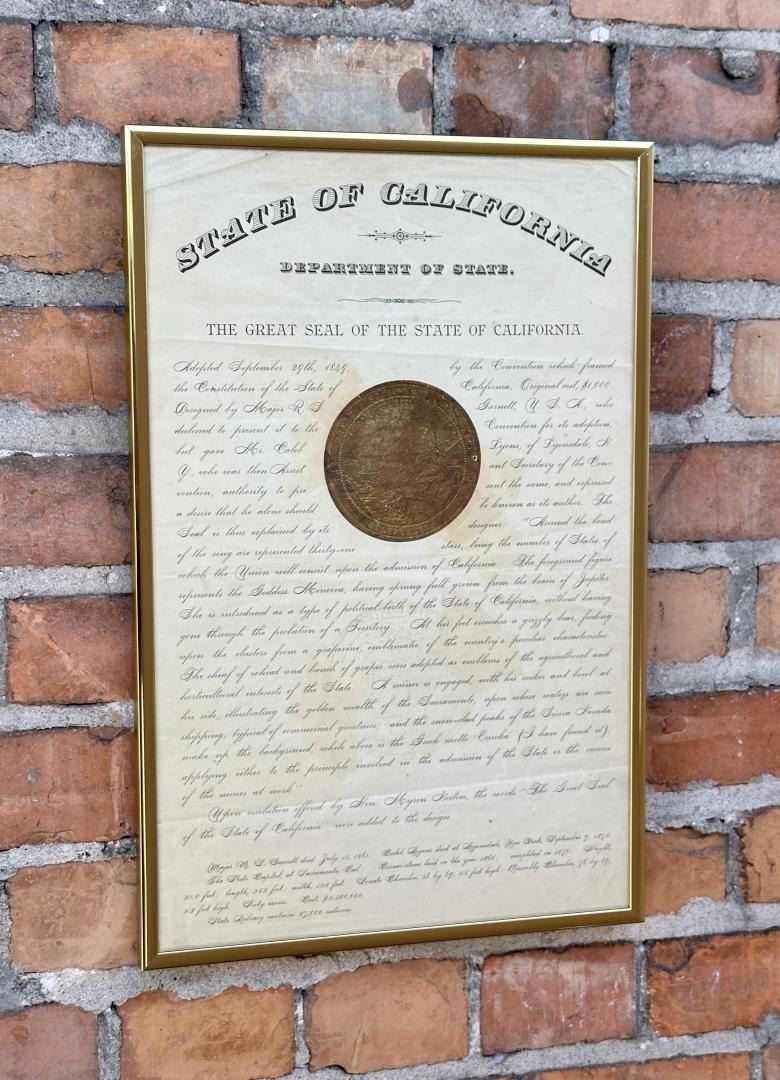 STATE OF CALIFORNIA
DEPARTMENT OF STATE.
THE GREAT SEAL OF THE STATE OF CALIFORNIA.
Adopted September 29th, 1849, by the Convention which framed
the Constitution of the State of California. Original cost, $1,000.
Designed by Major R. S. Garnett, U. S. A., who
declined to present it to the Convention for its adoption,
but gave Mr. Caleb Lyons, of Lyonsdale, N.
Y., who was then Assist ant Secretary of the Con-
vention, authority to pre sent the same, and expressed
a desire that he alone should be known as its author. The
Seal is thus explained by its designer. "Around the bend
of the ring are represented thirty-one stars, being the number of States of
which the Union will consist upon the admission of California. The foreground figure
represents the Goddess Minerva, having sprung full grown from the brain of Jupiter.
She is introduced as a type of political birth of the State of California, without having
gone through the probation of a Territory. At her feet crouches a grizzly bear, feeding
upon the clusters from a grapevine, emblematic of the country's peculiar characteristics.
The sheaf of wheat and bunch of grapes were adopted as emblems of the agricultural and
horticultural interests of the State. A miner is engaged, with his rocker and bowl at
his side, illustrating the golden wealth of the Sacramento, upon whose waters are seen
shipping, typical of commercial greatness; and the snow-clad peaks of the Sierra Nevada
make up the background, while above is the Greek motto "Eureka" (I have found it),
applying either to the principle involved in the admission of the State or the success
of the miner at work."
Upon resolution offered by Hon. Myron Norton, the words "The Great Seal
of the State of California" were added to the design.
Major R. S. Garnett died July 1861. Caleb Lyons died at Lyonsdale, New York, September 8, 1875.
The State Capitol, at Sacramento, Cal. Corner-stone laid in the year 1861; completed in 1874. Height,
feet; length, feet; width, feet. Senate Chamber, by feet high. Assembly Chamber, by
feet high. Sixty rooms. Cost, $2,500,000.
State Library contains 87,000 volumes.